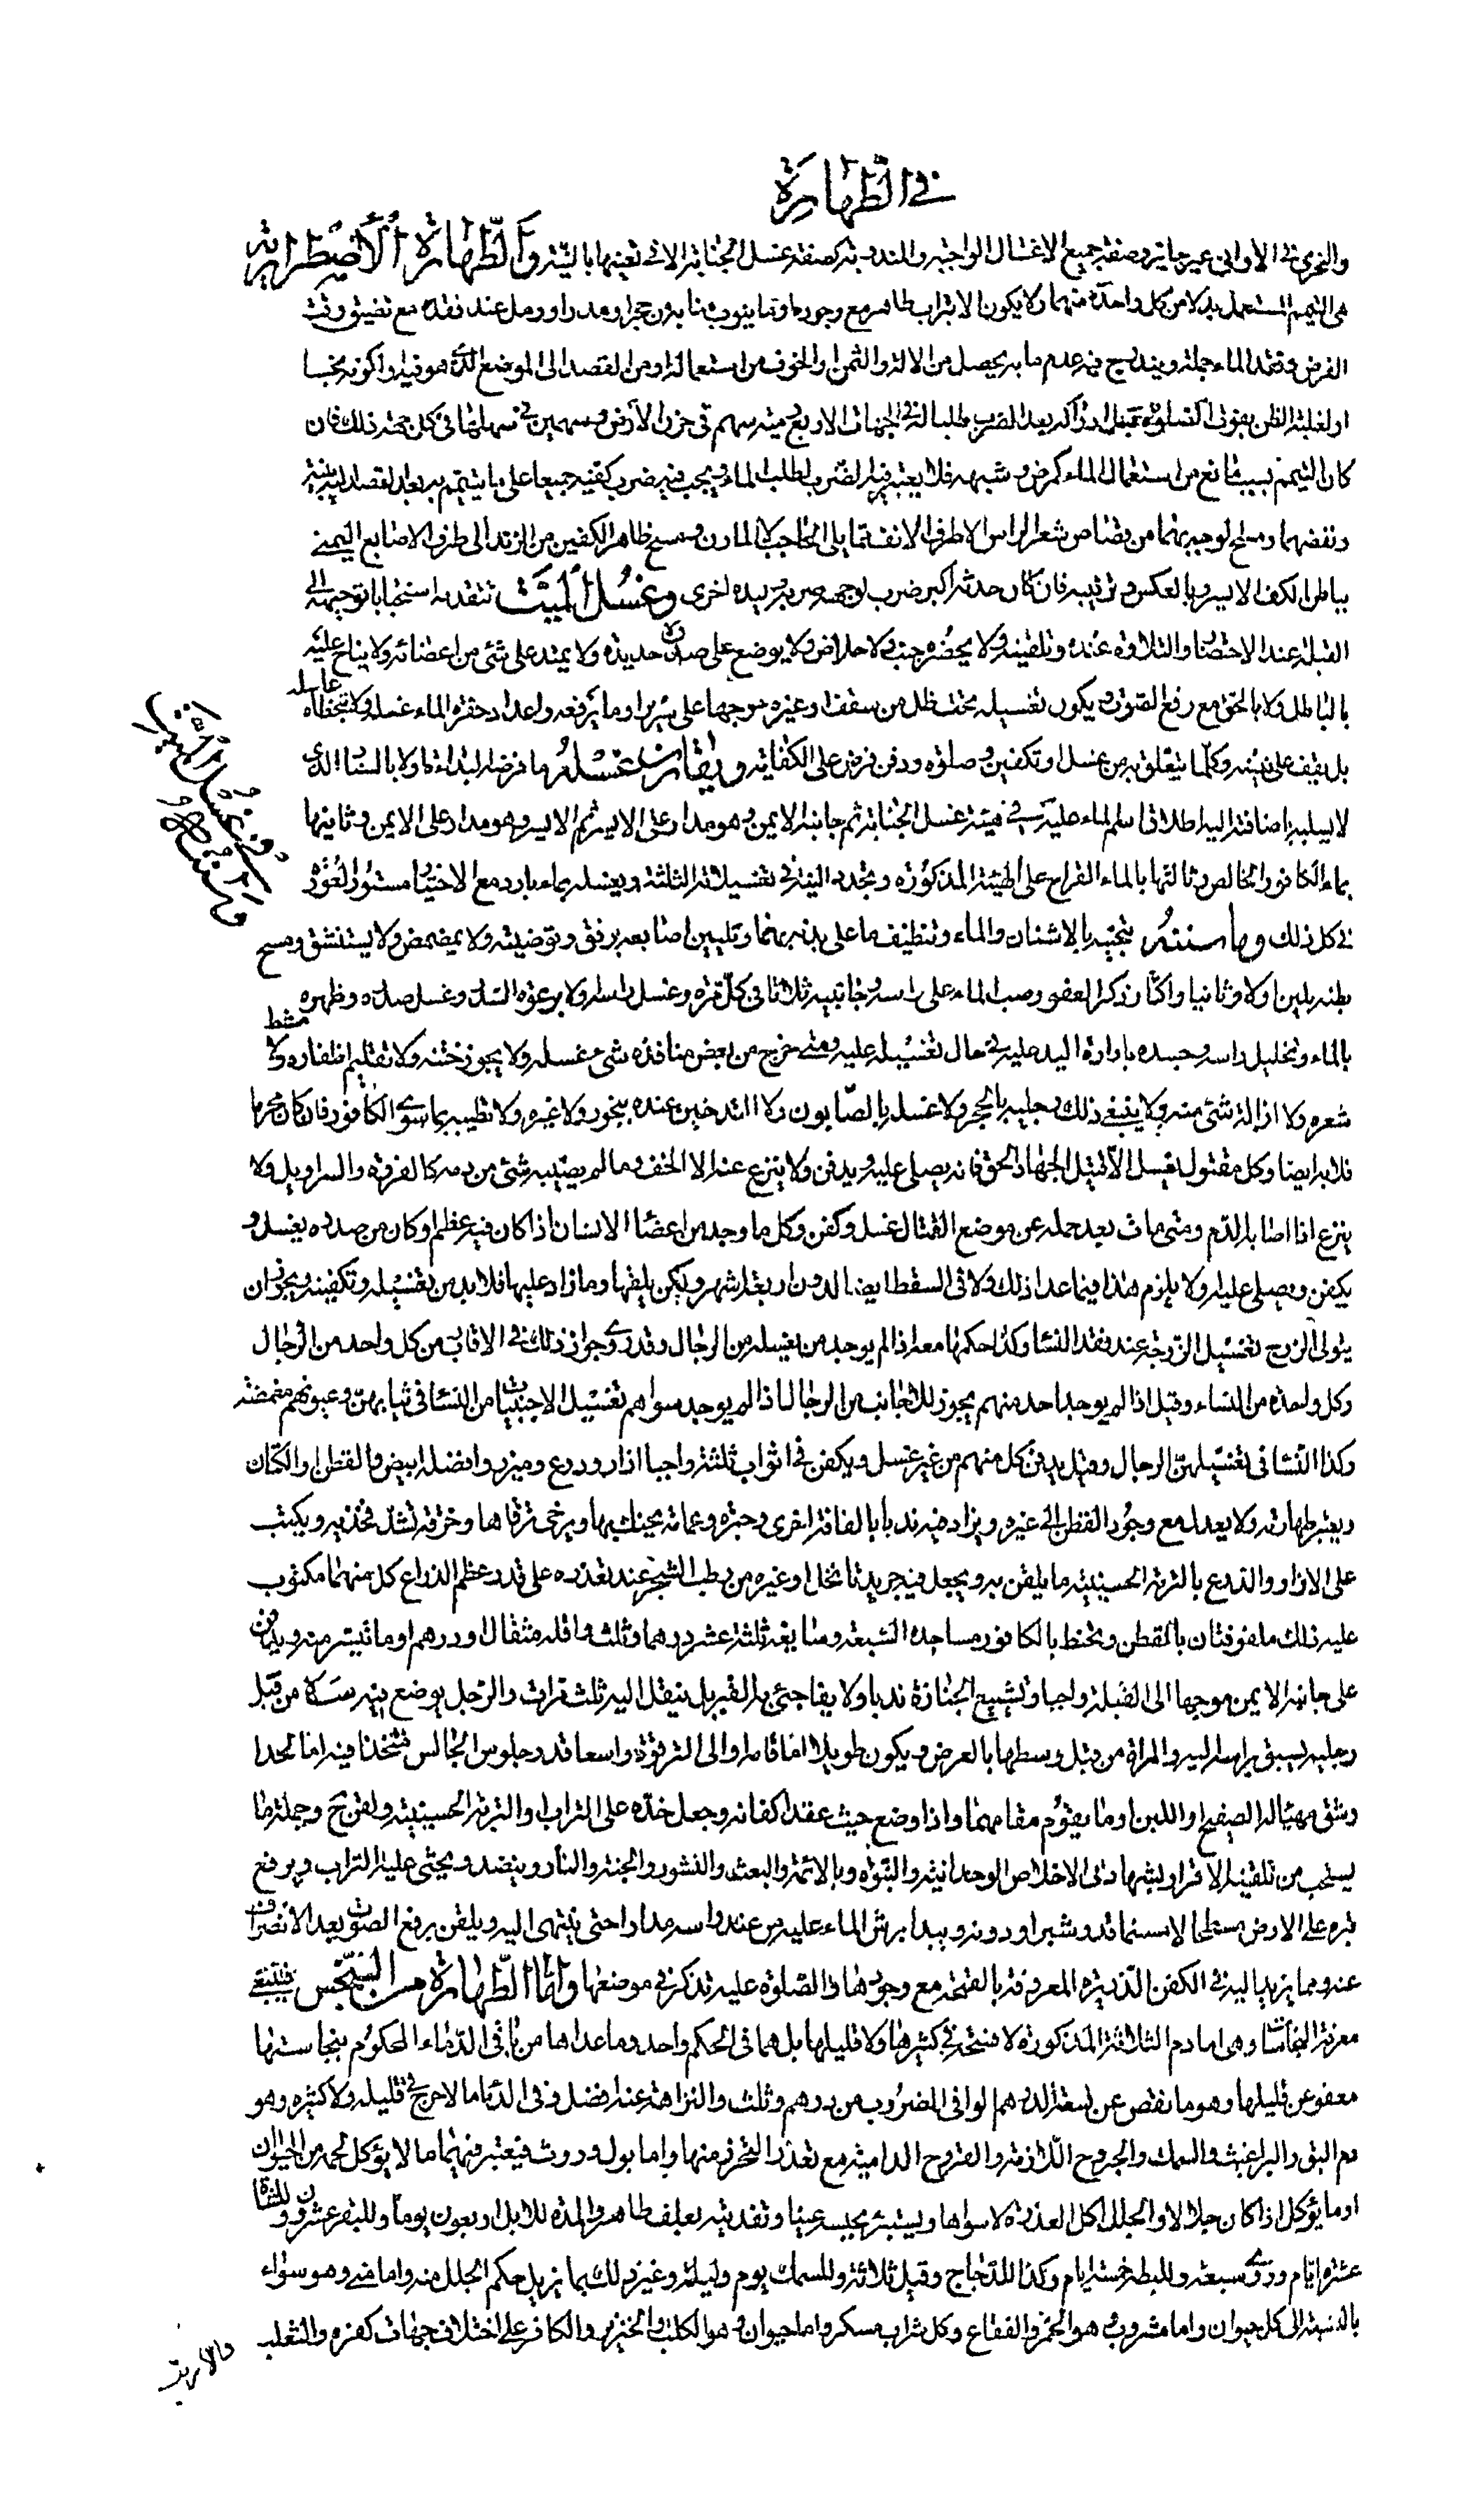 في الطهارة
والتحري في الأواني غير جايز وصفة جميع الاغسال الواجبة والمندوبة كصفة غسل الجنابة الا في تعينها بالنية والطهارة الاضطرارية
هي التيمم المستعمل بدلا من كل واحدة منهما ولا يكون الا بتراب طاهر مع وجوده وما ينوب منابه من حجر او مدر او رمل عند فقده مع تضيق وقت
الفرض وفقد الماء جملة ويندرج فيه عدم ما به يحصل من الالة والثمن والخوف من استعماله او من القصد الى الموضع الذي هو فيه او كونه نجسا
او لغلبة الظن بفوت الصلوة قبل ادراكه بعد الضرب طلبا له في الجهات الاربع رمية سهم في حزن الأرض وسهمين في سهلها في كل جهة ذلك فان
كان التيمم بسبب مانع من استعمال الماء كمرض وشبهه فلا يعتبر فيه الضرب لطلب الماء ويجب فيه ضرب كفيه جميعا على ما يتيمم به بعد القصد اليه بنية
ونفضهما ومسح الوجه بهما من قصاص شعر الراس الا طرف الانف مما يلي الحاجب لا المارن ومسح ظاهر الكفين من الزند الى طرف الاصابع اليمنى
بباطن الكف الايسر وبالعكس وترتيبه فان كان حدثه اكبر ضرب لوجهه ضربة وليديه اخرى وغسل الميت تتقدمه استحبابا توجيهه الى
القبلة عند الاحتضار والتلاوة عنده وتلقينه ولا يحضره جنب ولا حائض ولا يوضع على صدره حديدة ولا يمتد على شئ من اعضائه ولا يناح عليه
بالباطل ولا بالحق مع رفع الصوت ويكون تغسيله تحت ظل من سقف او غيره موجها على سرير او ما يرفعه واعداد حفرة لماء غسله ولا يتخطاه غاسله
بل يقف على يمينه وكلما يتعلق به من غسل او تكفين وصلوة ودفن فرض على الكفاية ويقارن غسله ما فرضه ابتداءه اولا بالسدر الذي
لا يسلبه اضافته اليه اطلاق اسم الماء عليه في هيئة غسل الجنابة ثم جانبه الايمن وهو مدار على الايسر ثم الايسر وهو مدار على الايمن وثانيها
بماء الكافور الخالص وثالثها بالماء القراح على الهيئة المذكورة وتجدد النية في تغسيلاته الثلثة ويغسله بماء بارد مع الاختيار مستور العورة
في كل ذلك وما سنته تنجيته بالاشنان والماء وتنظيف ما على بدنه بهما وتليين اصابعه برفق وتوضيته ولا يمضمض ولا يستنشق ومسح
بطنه بلين اولا وثانيا واكثار ذكر العفو وصب الماء على راسه وجانبيه ثلاثا في كل مرة وغسل راسه اولا برغوة السدر وغسل صدره وظهره
بالماء وتخليل راسه وجسده بادارة اليد عليه في حال تغسيله عليه ومتى خرج من بعض منافذه شئ غسله ولا يجوز ختنه ولا تقليم اظفاره ولا مشط
شعره ولا ازالة شئ منه ولا ينبغي ذلك رجليه بالحجر ولا غسله بالصابون ولا التدخين عنده ببخور ولا غيره ولا تطييبه بما سوى الكافور فان كان محرما
فلا به ايضا وكل مقتول يغسل الا قتيل الجهاد الحق فانه يصلي عليه ويدفن ولا ينزع عنه الا الخف وما لم يصيبه شئ من دمه كالفروة والسراويل ولا
ينزع اذا اصابه الدم ومتى مات بعد حمله عن موضع القتال غسل وكفن وكل ما وجد من اعضاء الانسان اذا كان فيه عظم او كان من صدره يغسل و
يكفن ويصلي عليه ولا يلزم هذا فيما عدا ذلك ولا في السقط ايضا لدون اربعة اشهر ولكن يلفها وما زاد عليها فلا بد من تغسيله وتكفينه ويجوز ان
يتولى الزوج تغسيل الزوجة عند فقد النساء وكذا حكمها معه اذا لم يوجد من يغسله من الرجال وقد روي جواز ذلك في الاقارب من كل واحد من الرجال
وكل واحدة من النساء وقيل اذا لم يوجد احد منهم يجوز للاجانب من الرجال اذا لم يوجد سواهم تغسيل الاجنبيات من النساء في ثيابهن وعيونهم مغمضة
وكذا النساء في تغسيلهن الرجال وقيل يدفن كل منهم من غير غسل ويكفن في اثواب ثلثة واجبا ازار ودرع وميزر وافضله ابيض القطن او الكتان
ويعتبر طهارته ولا يعدل مع وجود القطن الى غيره ويزاد فيه ندبا بالفافة اخرى وحبره وعمامة يحنك بها ويرخى طرفاها وخرقة تشد فخذيه ويكتب
على الازار والدرع بالتربة الحسينية ما يلقن به ويجعل فيه جريدتا نخل او غيره من رطب الشجر عند تعذره على قدر عظم الذراع كل منهما مكتوب
عليه ذلك ملفوفتان بالقطن ويحنط بالكافور مساجده السبعة وسايغه ثلثة عشر درهما وثلث واقله مثقال او درهم او ما تيسر منه ويدفن
على جانبه الايمن موجها الى القبلة واجبا وتشييع الجنازة ندبا ولا يفاجئ به القبر بل ينقل اليه ثلث مرات والرجل يوضع من قبل
رجليه يسبق براسه اليه والمراة من قبل وسطها بالعرض ويكون طويلا اما قامة او الى الترقوة واسعا قدر جلوس الجالس متخذا فيه اما لحدا
وشق مهيئا له الصفيح او اللبن او ما يقوم مقامهما واذا وضع حيث عقد اكفانه وجعل خده على التراب او التربة الحسينية ولقن وجملة ما
يستحب من تلقينه الاقرار بشهادتي الاخلاص الوحدانية والنبوة وبالائمة والبعث والنشور والجنة والنار وينضد ويحثى عليه التراب ويرفع
قبره على الارض مسطحا لا مسنما قدر شبر او دونه ويبدا برش الماء عليه من عند راسه مدارا حتى ينتهى اليه ويلقن برفع الصوت بعد الانصراف
عنه ومما يزيد اليه في الكفن الذريرة المعروفة بالقمحة مع وجودها والصلوة عليه تذكر في موضعها واما الطهارة من النجس فينبغي
معرفة النجاسات وهي اما دم الثلاثة المذكورة لا فسحة في كثيرها ولا قليلها بل هما في الحكم واحد وما عداها من باقي الدماء المحكوم بنجاستها
معفو عن قليلها وهو ما نقص عن سعة الدرهم الوافي المضروب من درهم وثلث والنزاهة عنه افضل وفي الدماء ما لا حرج في قليله ولا كثيره وهو
دم البق والبراغيث والسمك والجروح اللازمة والقروح الدامية مع تعذر التحرز منها واما بول وروث فيعتبر فيهما ما لا يؤكل لحمه من الحيوان
او ما يؤكل اذا كان جلالا والجلل اكل العذرة لا سواها ويستبرئ بحبسه عينا وتغديته بعلف طاهر والمدة للابل اربعون يوما وللبقر عشرون وللشاة
عشرة ايام وروي سبعة وللبط خمسة ايام وكذا للدجاج وقيل ثلاثة وللسمك يوم وليلة وغير ذلك بما يزيل حكم الجلل منه واما مني وهو سواء
بالنسبة الى كل حيوان واما مشروب وهو الخمر والفقاع وكل شراب مسكر واما حيوان وهو الكلب والخنزير والكافر على اختلاف جهات كفره والثعلب
والارنب